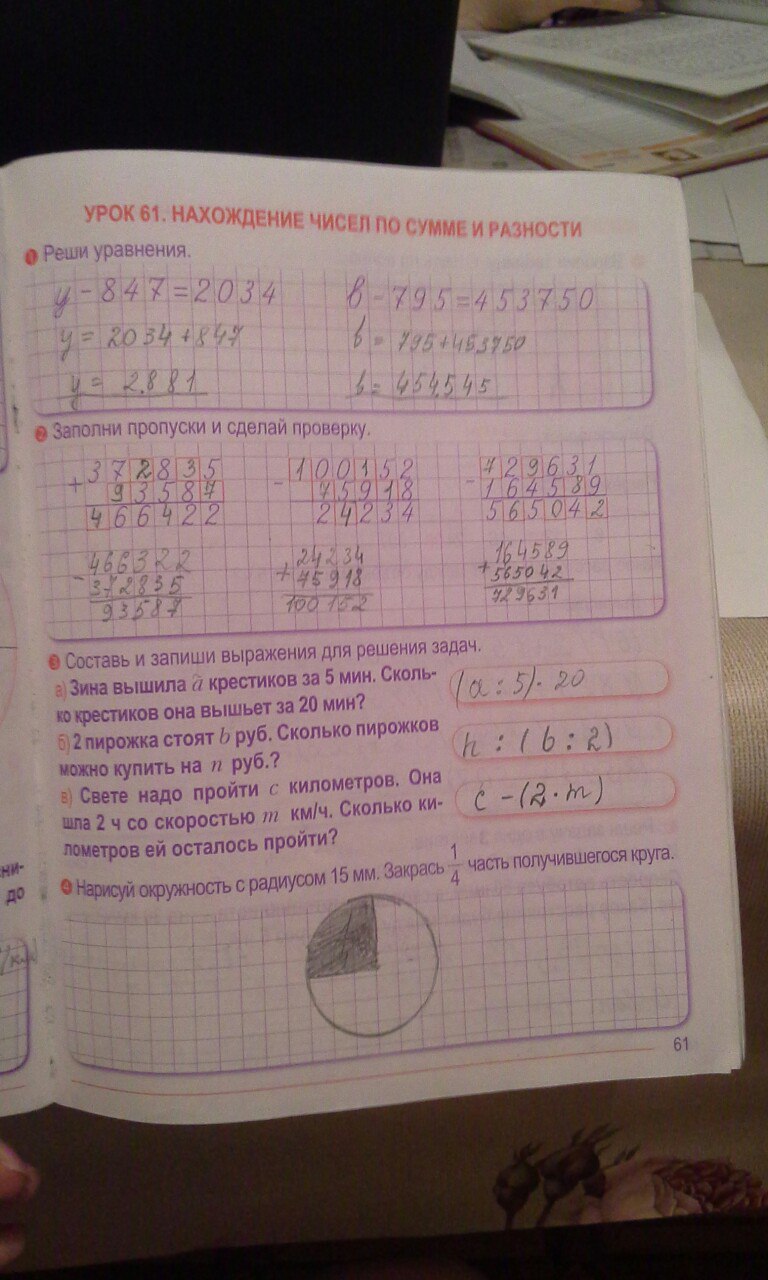 УРОК 61. НАХОЖДЕНИЕ ЧИСЕЛ ПО СУММЕ И РАЗНОСТИ
1 Реши уравнения.
y - 847 = 2034
b - 795 = 453750
y = 2034 + 847
b = 795 + 453750
y = 2881
b = 454545
2 Заполни пропуски и сделай проверку.
+ 372835
93587
466422
- 100152
75918
24234
- 729631
164589
565042
- 466322
372835
93587
+ 24234
75918
100152
+ 164589
565042
729631
3 Составь и запиши выражения для решения задач.
а) Зина вышила a крестиков за 5 мин. Сколь-
ко крестиков она вышьет за 20 мин?
(a : 5) · 20
б) 2 пирожка стоят b руб. Сколько пирожков
можно купить на n руб.?
n : (b : 2)
в) Свете надо пройти c километров. Она
шла 2 ч со скоростью m км/ч. Сколько ки-
лометров ей осталось пройти?
c - (2 · m)
4 Нарисуй окружность с радиусом 15 мм. Закрась 1/4 часть получившегося круга.
61
ни-
до